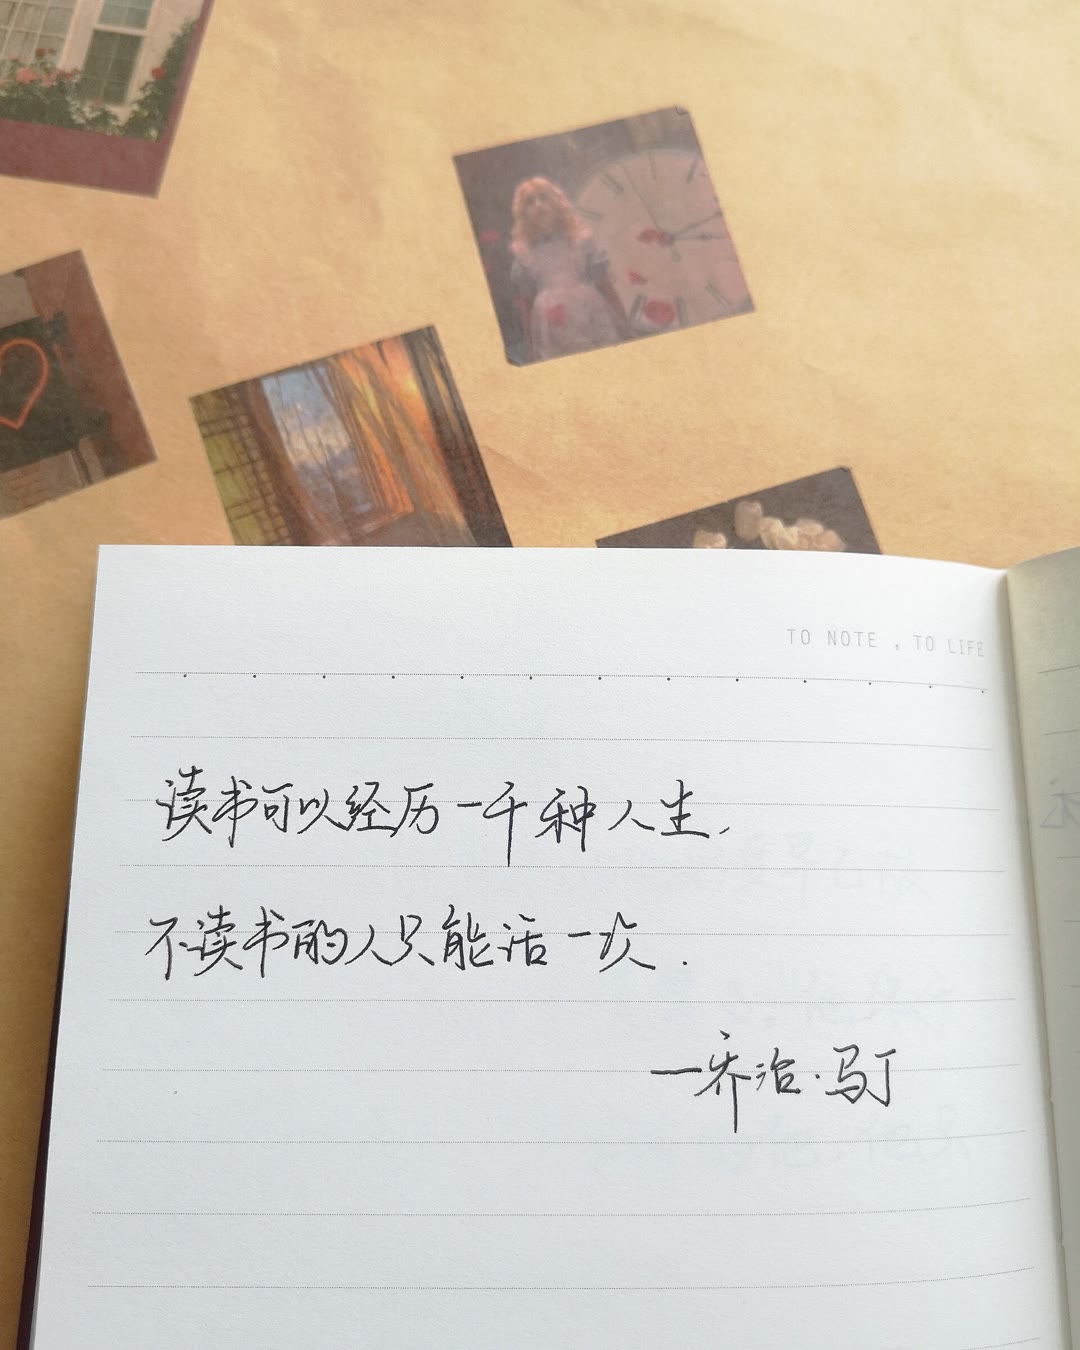 TO NOTE , TO LIFE
读书可以经历一千种人生,
不读书的人只能活一次.
—乔治·马丁